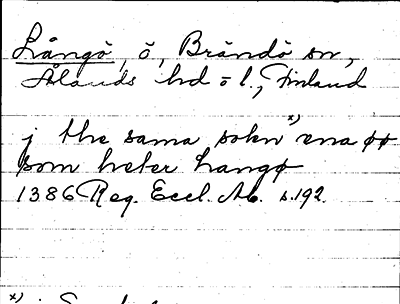 Långö, ö, Brändö sn,
Ålands hd o l., Finland
j the sama sokn x) ena øø
som heter langø
1386 Reg. Eccl. Ab. s. 192.
x)